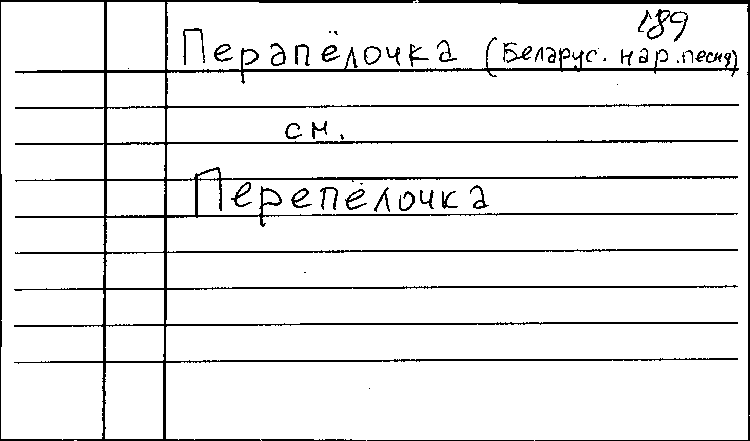 189
Перапёлочка (Беларус. нар. песня)
см.
Перепёлочка